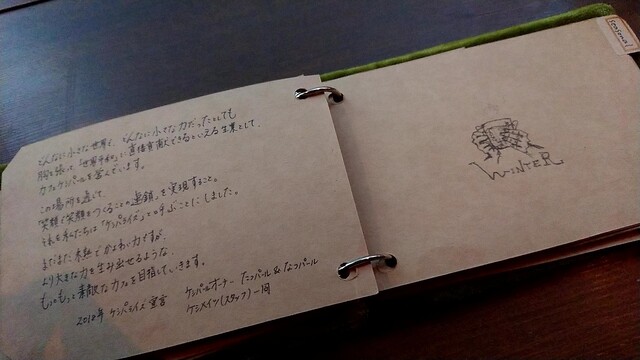 どんなに小さな世界で、どんなに小さな力だったとしても
胸を張って「世界平和」に直接貢献できるといえる生業として、
カフェケンパールを営んでいます。
この場所を通じて
「笑顔で笑顔をつくることの連鎖」を実現すること。
それを私たちは「ケンパライズ」と呼ぶことにしました。
まだまだ未熟でかよわい力ですが、
より大きな力を生み出せるような
もっともっと素敵なカフェを目指していきます。
2012年 ケンパライズ宣言
ケンパールオーナー たつパール & なつパール
ケンメイツ(スタッフ)一同
WINTER